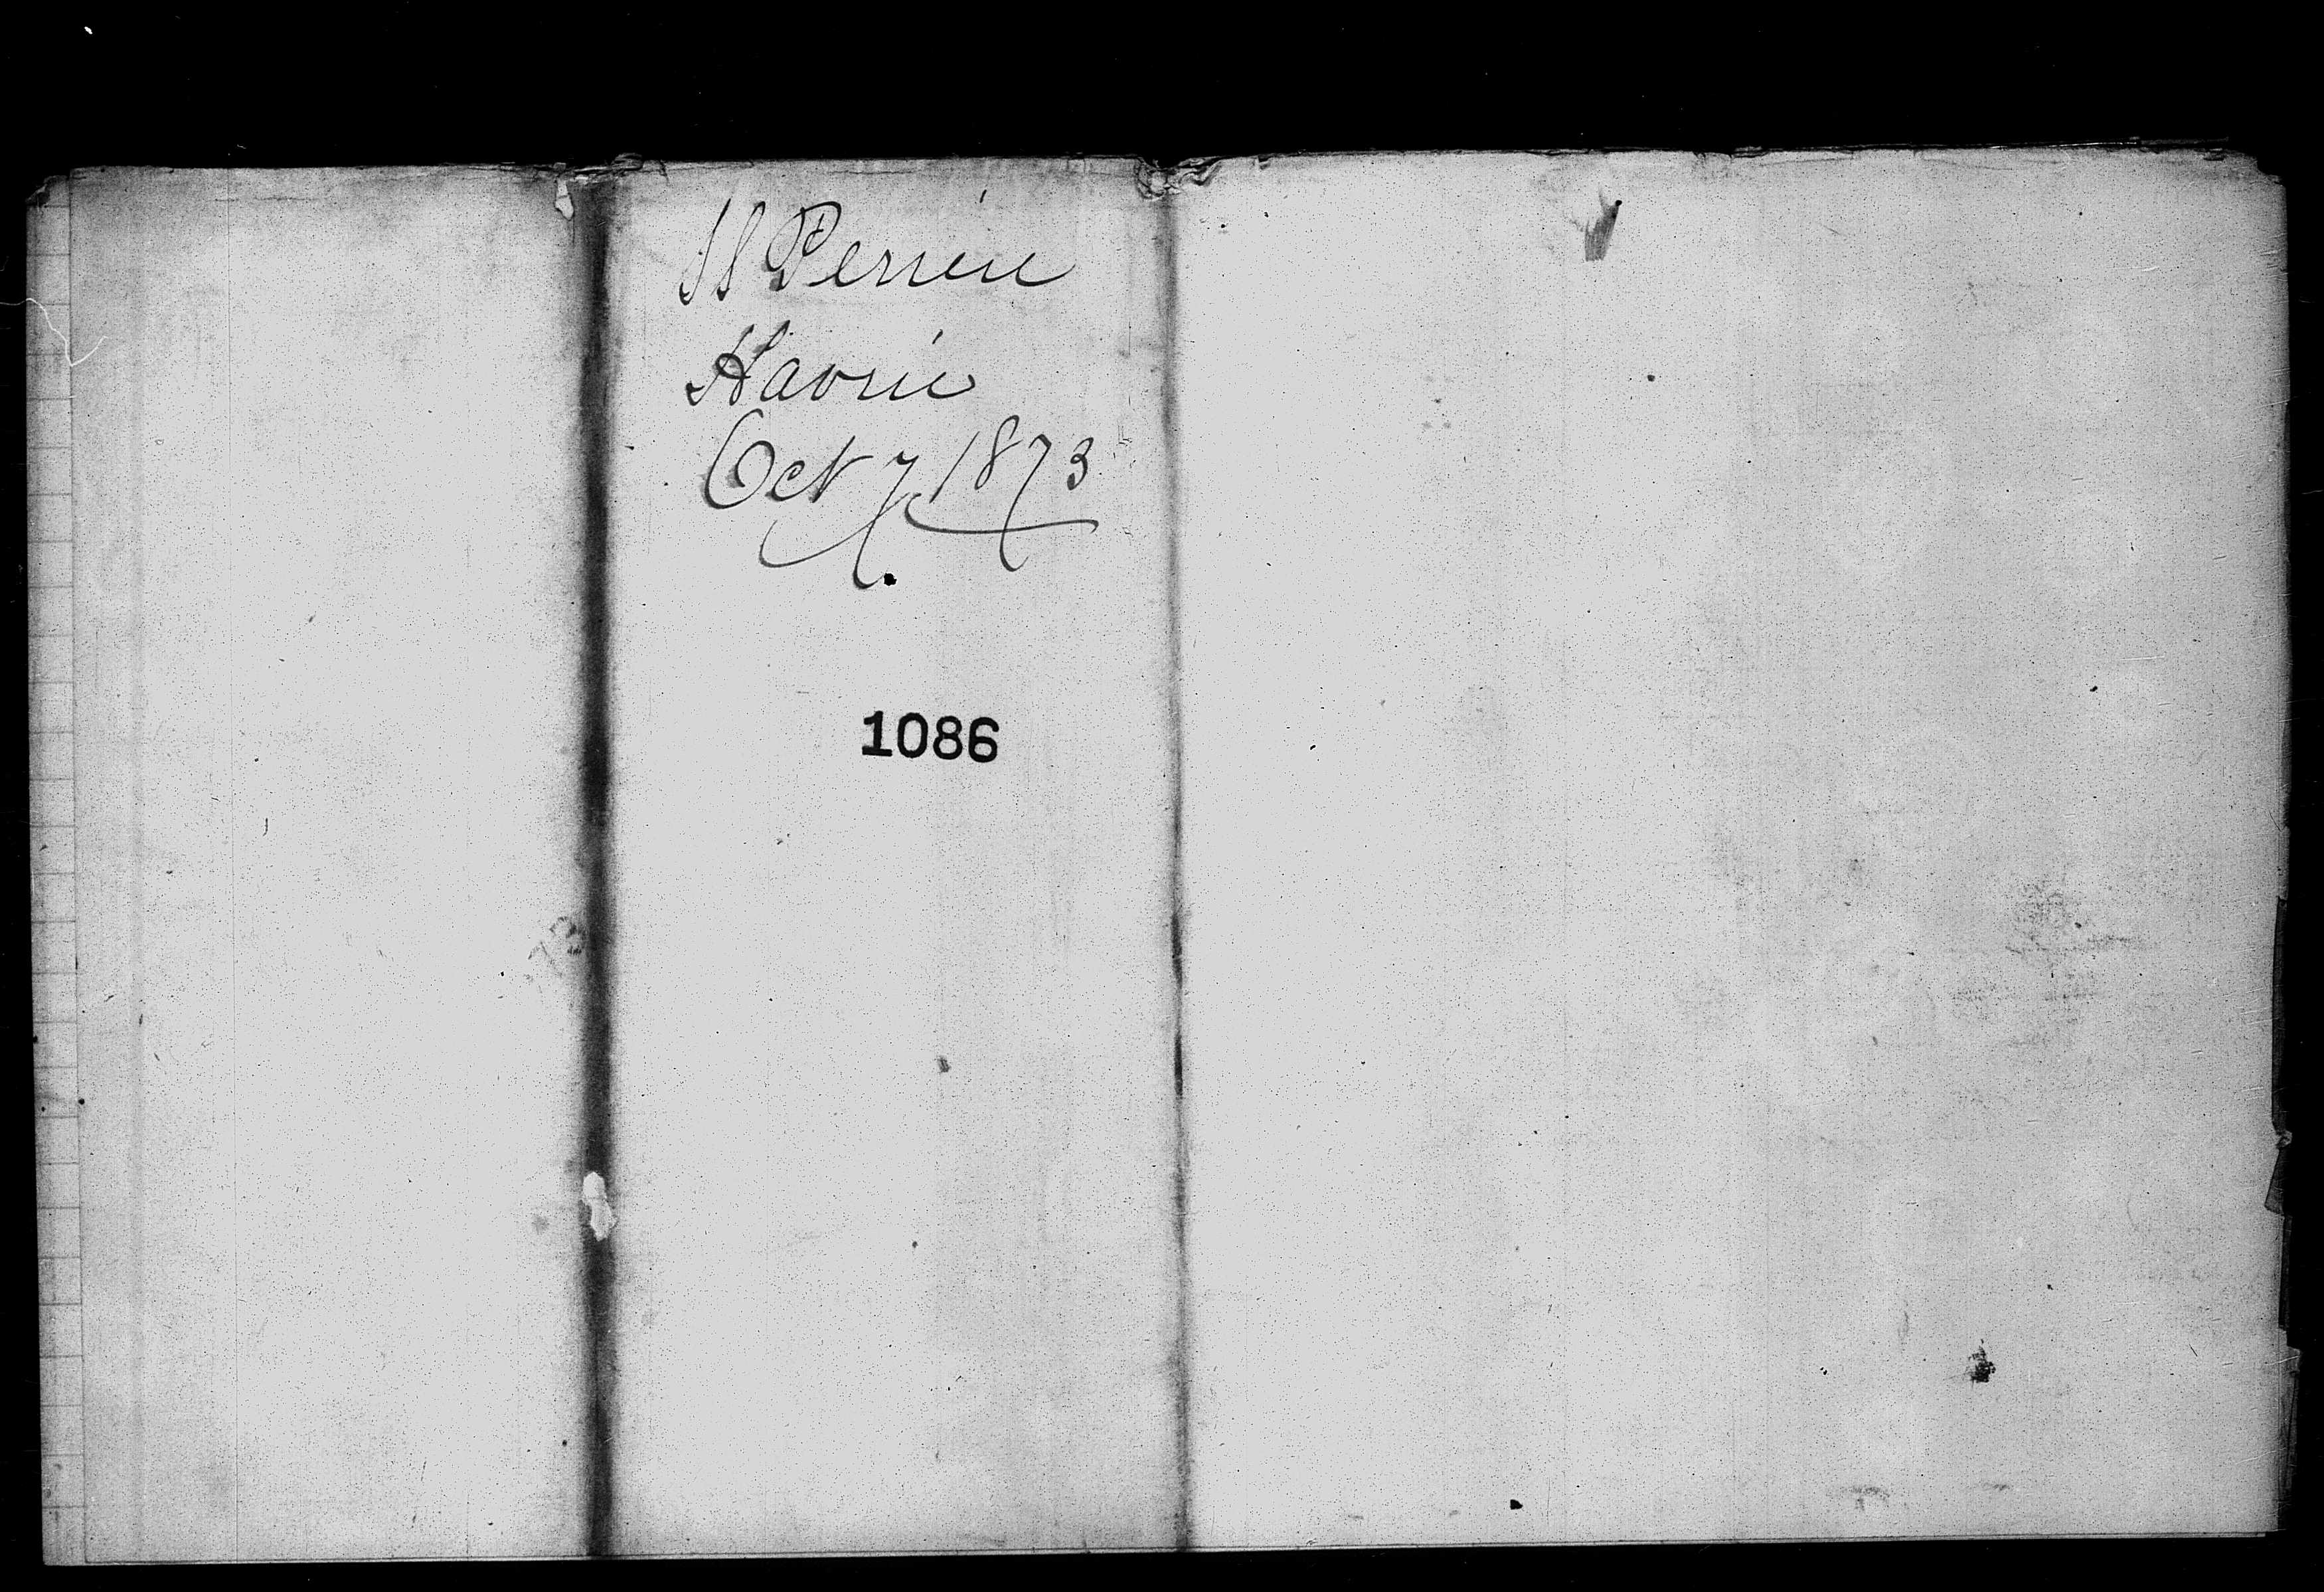 SS Pereire
Havre
Oct 7 1873
1086